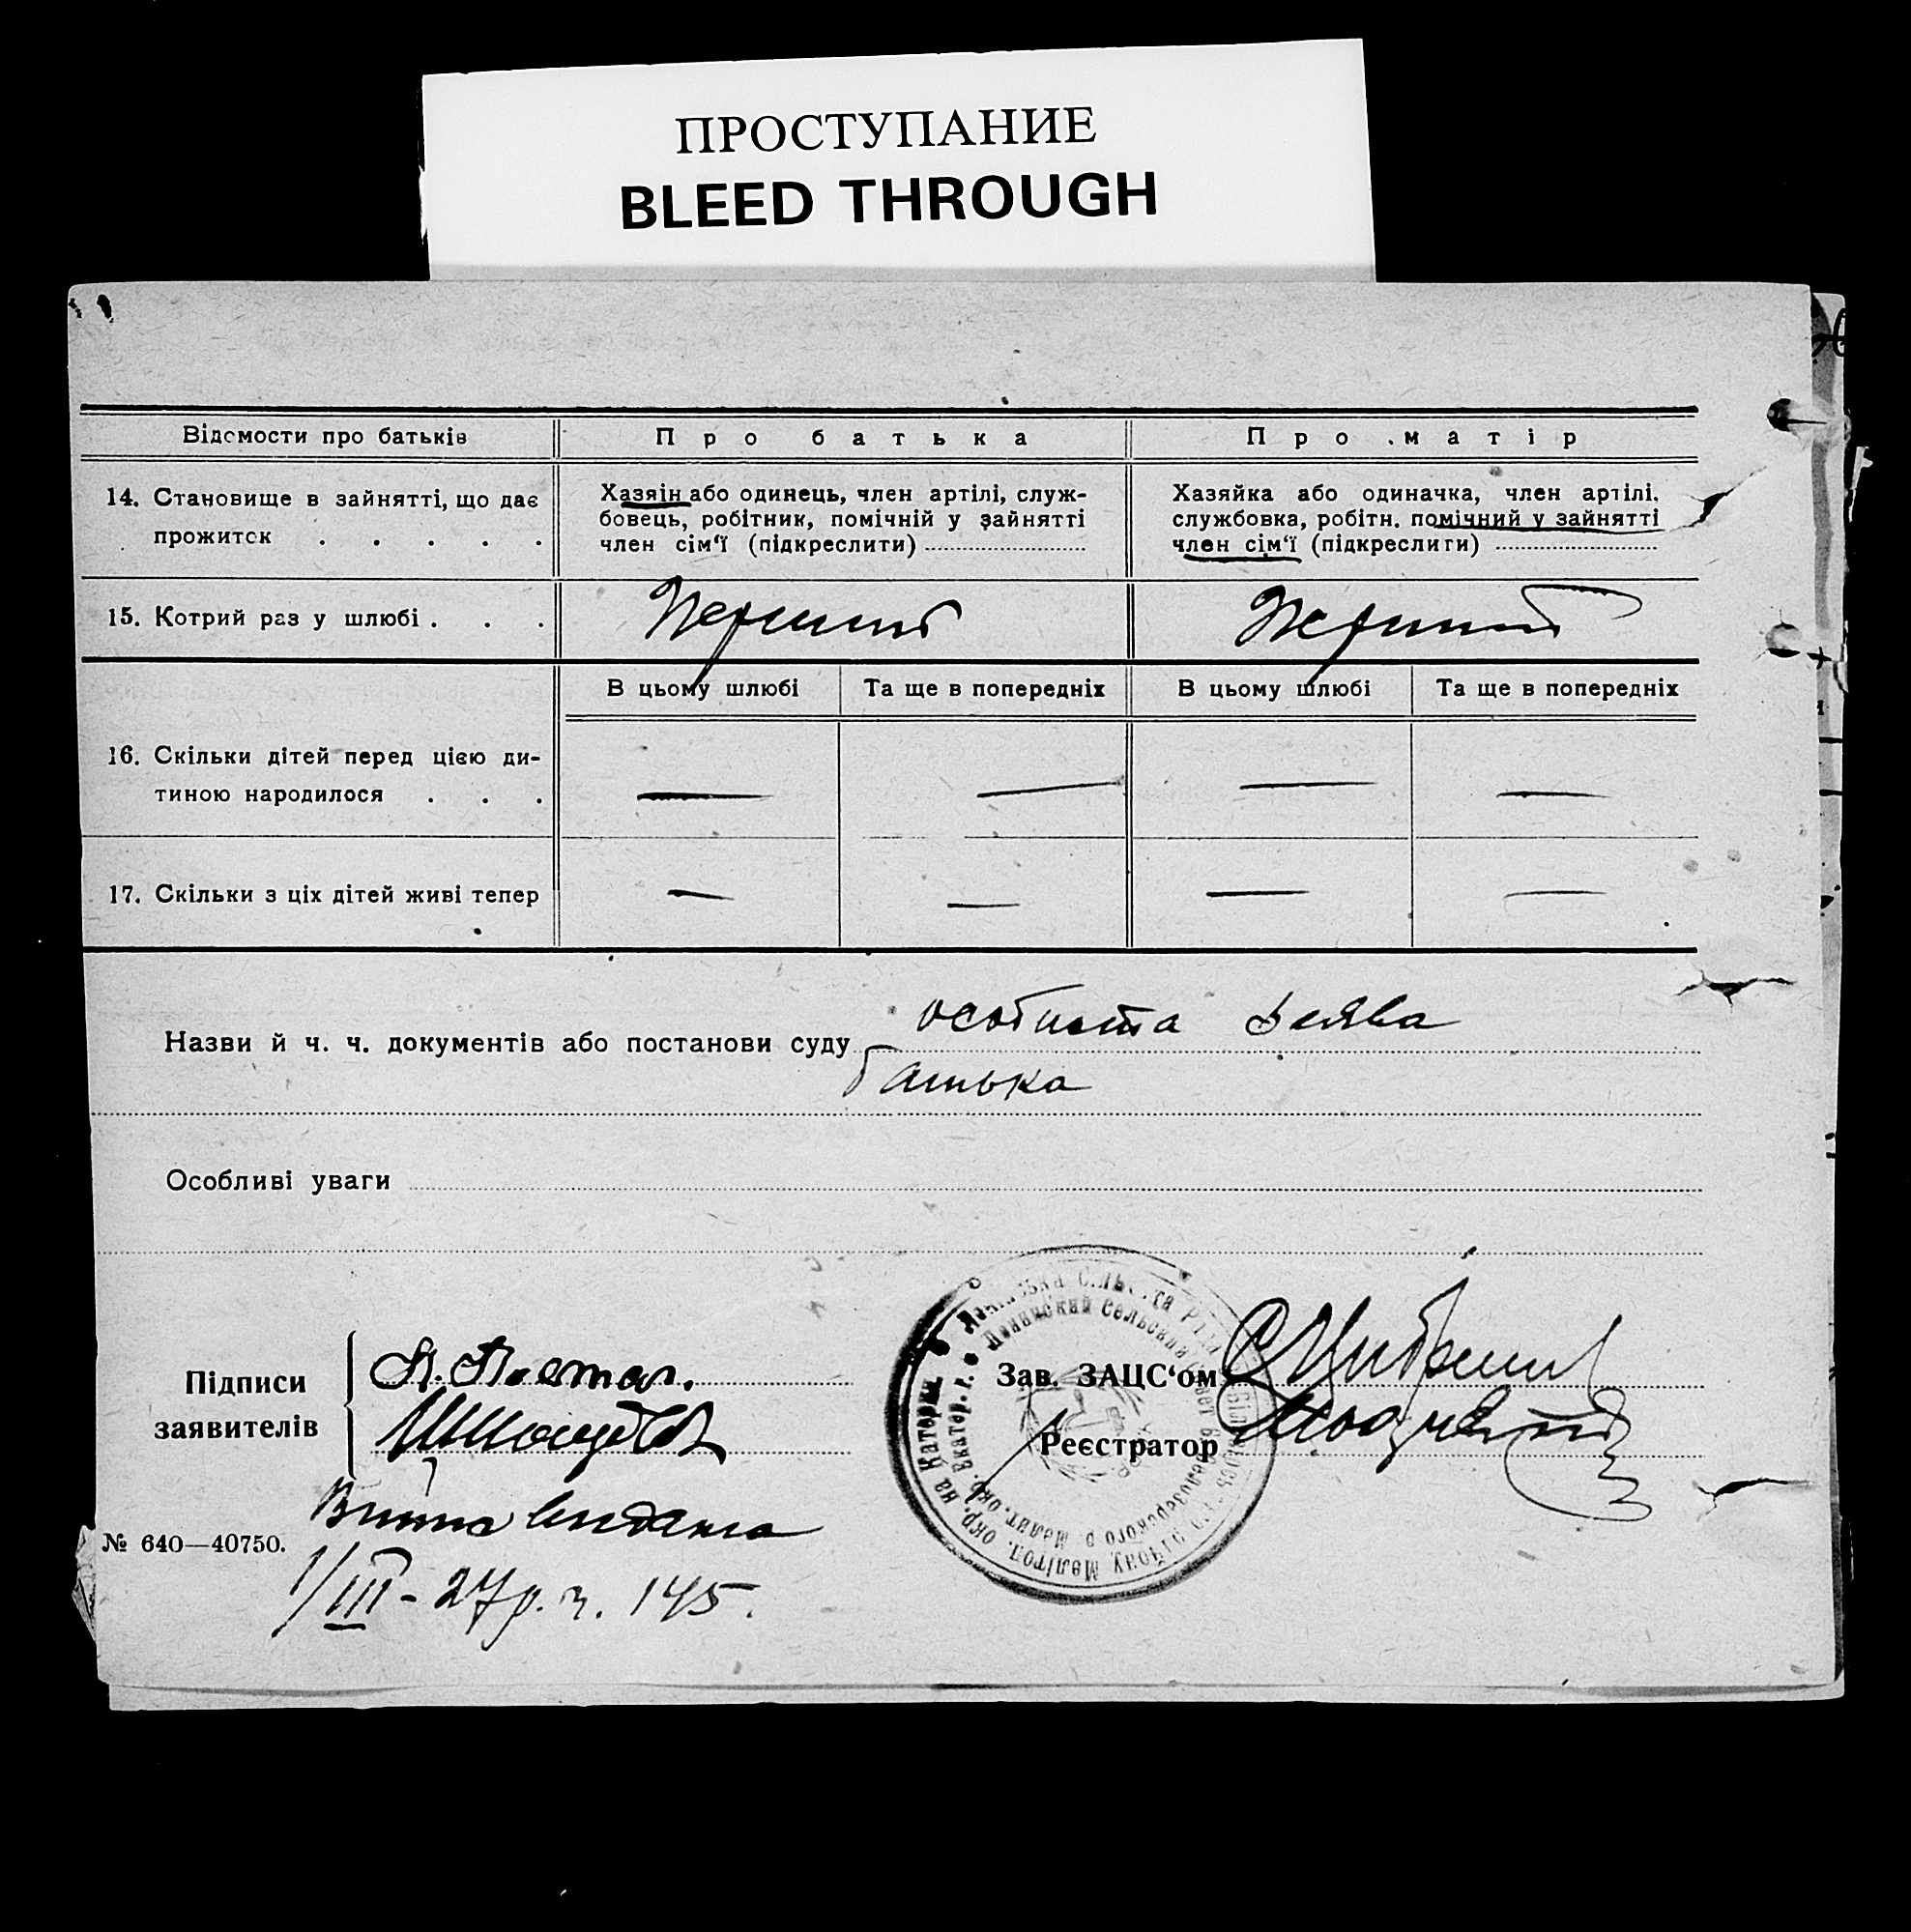 ПРОСТУПАНИЕ
BLEED THROUGH
Відомости про батьків
Про батька
Про матір
14. Становище в зайнятті, що дає
прожиток . . . . .
Хазяін або одинець, член артілі, служ-
бовець, робітник, помічній у зайнятті
член сім‘ї (підкреслити)
Хазяйка або одиначка, член артілі,
службовка, робітн. помічний у зайнятті
член сім‘ї (підкреслити)
15. Котрий раз у шлюбі . . .
Перший
Перший
В цьому шлюбі
Та ще в попередніх
В цьому шлюбі
Та ще в попередніх
16. Скільки дітей перед цією ди-
тиною народилося . . .
— — — —
17. Скільки з ціх дітей живі тепер
— — — —
Назви й ч. ч. документів або постанови суду особиста заява
батька
Особливі уваги
Підписи
заявителів
Зав. ЗАЦС‘ом
Реєстратор
видана
№ 640—40750.
1/III - 27 р. ч. 145.